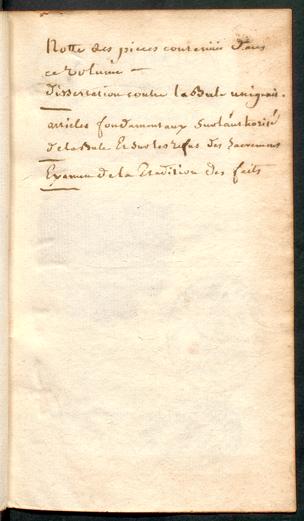 Notte des pieces contenuës dans
ce volume —
dissertation contre la Bule unigenit.
articles fondamentaux sur l'authorité
de la Bule Et sur les refus des Sacremens
Examen de la Tradition des faits